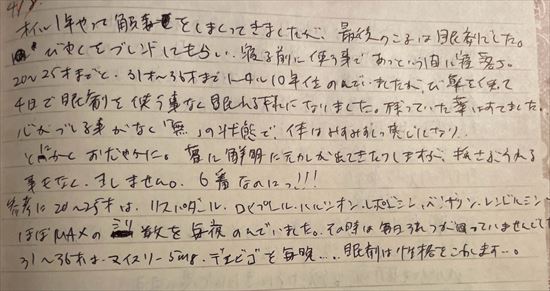 オイル1年やって解毒をしまくってきましたが、最後のこるは眠剤でした。
びやくをブレンドしてもらい、寝る前に使う事であっという間に寝落ち。
20〜25才までと、31才〜36才まで トータル10年位のんでいましたが、び薬を使って
4日で眠剤を使う事なく眠れる様になりました。残っていた薬はすてました。
心がブレる事がなく「無」の状態で、体は 感じになり、
とにかくおだやかに。夢に鮮明に元カレが出てきたりしますが、
事もなく、きしません。6番なのにっ!!!
参考に20〜25才は、リスパダール、ロヒプノール、ハルシオン、レボトミン、
ほぼMAXの 数を毎夜のんでいました。その時は毎日ろれつが回っていませんでした
31〜36才は、マイスリー5mg、デエビゴを毎晩…。眠剤は性格をこわします…。